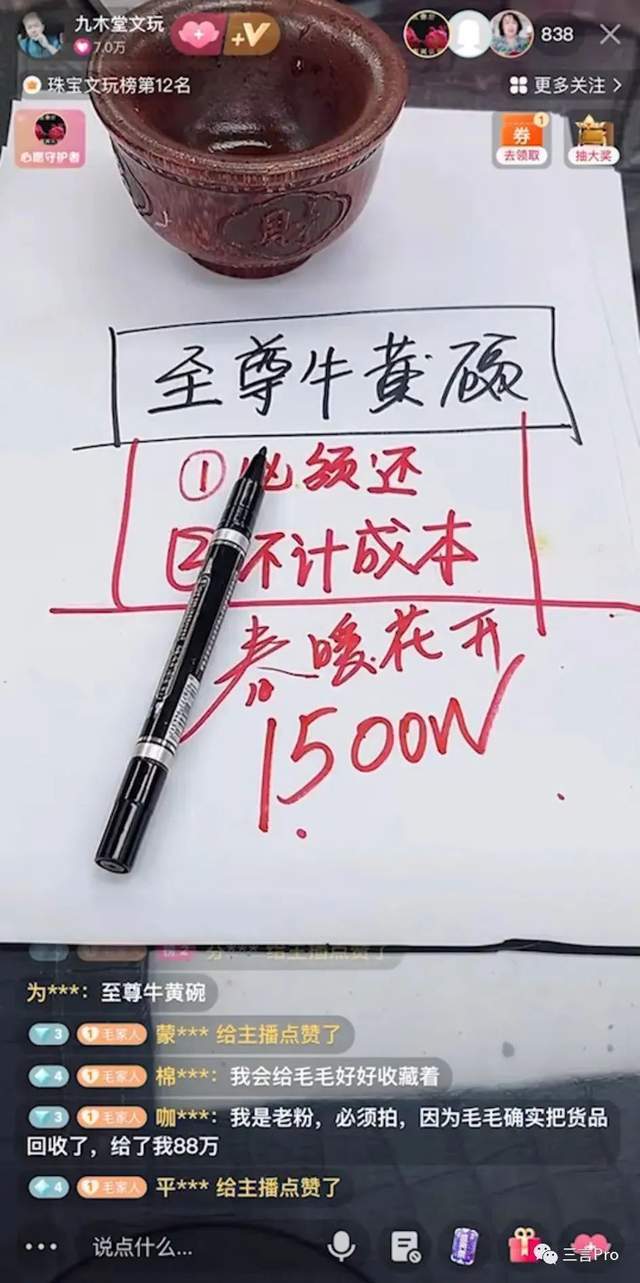 九木堂文玩
7.0万
+
+V
838
珠宝文玩榜第12名
更多关注 >
心愿守护者
券
1
去领取
抽大奖
財
至尊牛黄碗
①必须还
②不计成本
春暖花开
1500W
给主播点赞了
为***：至尊牛黄碗
3 1 毛家人 蒙*** 给主播点赞了
4 1 毛家人 棉***：我会给毛毛好好收藏着
3 1 毛家人 咖***：我是老粉，必须拍，因为毛毛确实把货品
回收了，给了我88万
4 1 毛家人 平*** 给主播点赞了
说点什么...
三言Pro